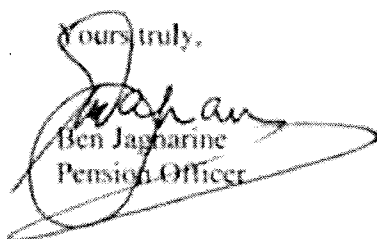 Yours truly,
Ben Jagharine
Pension Officer